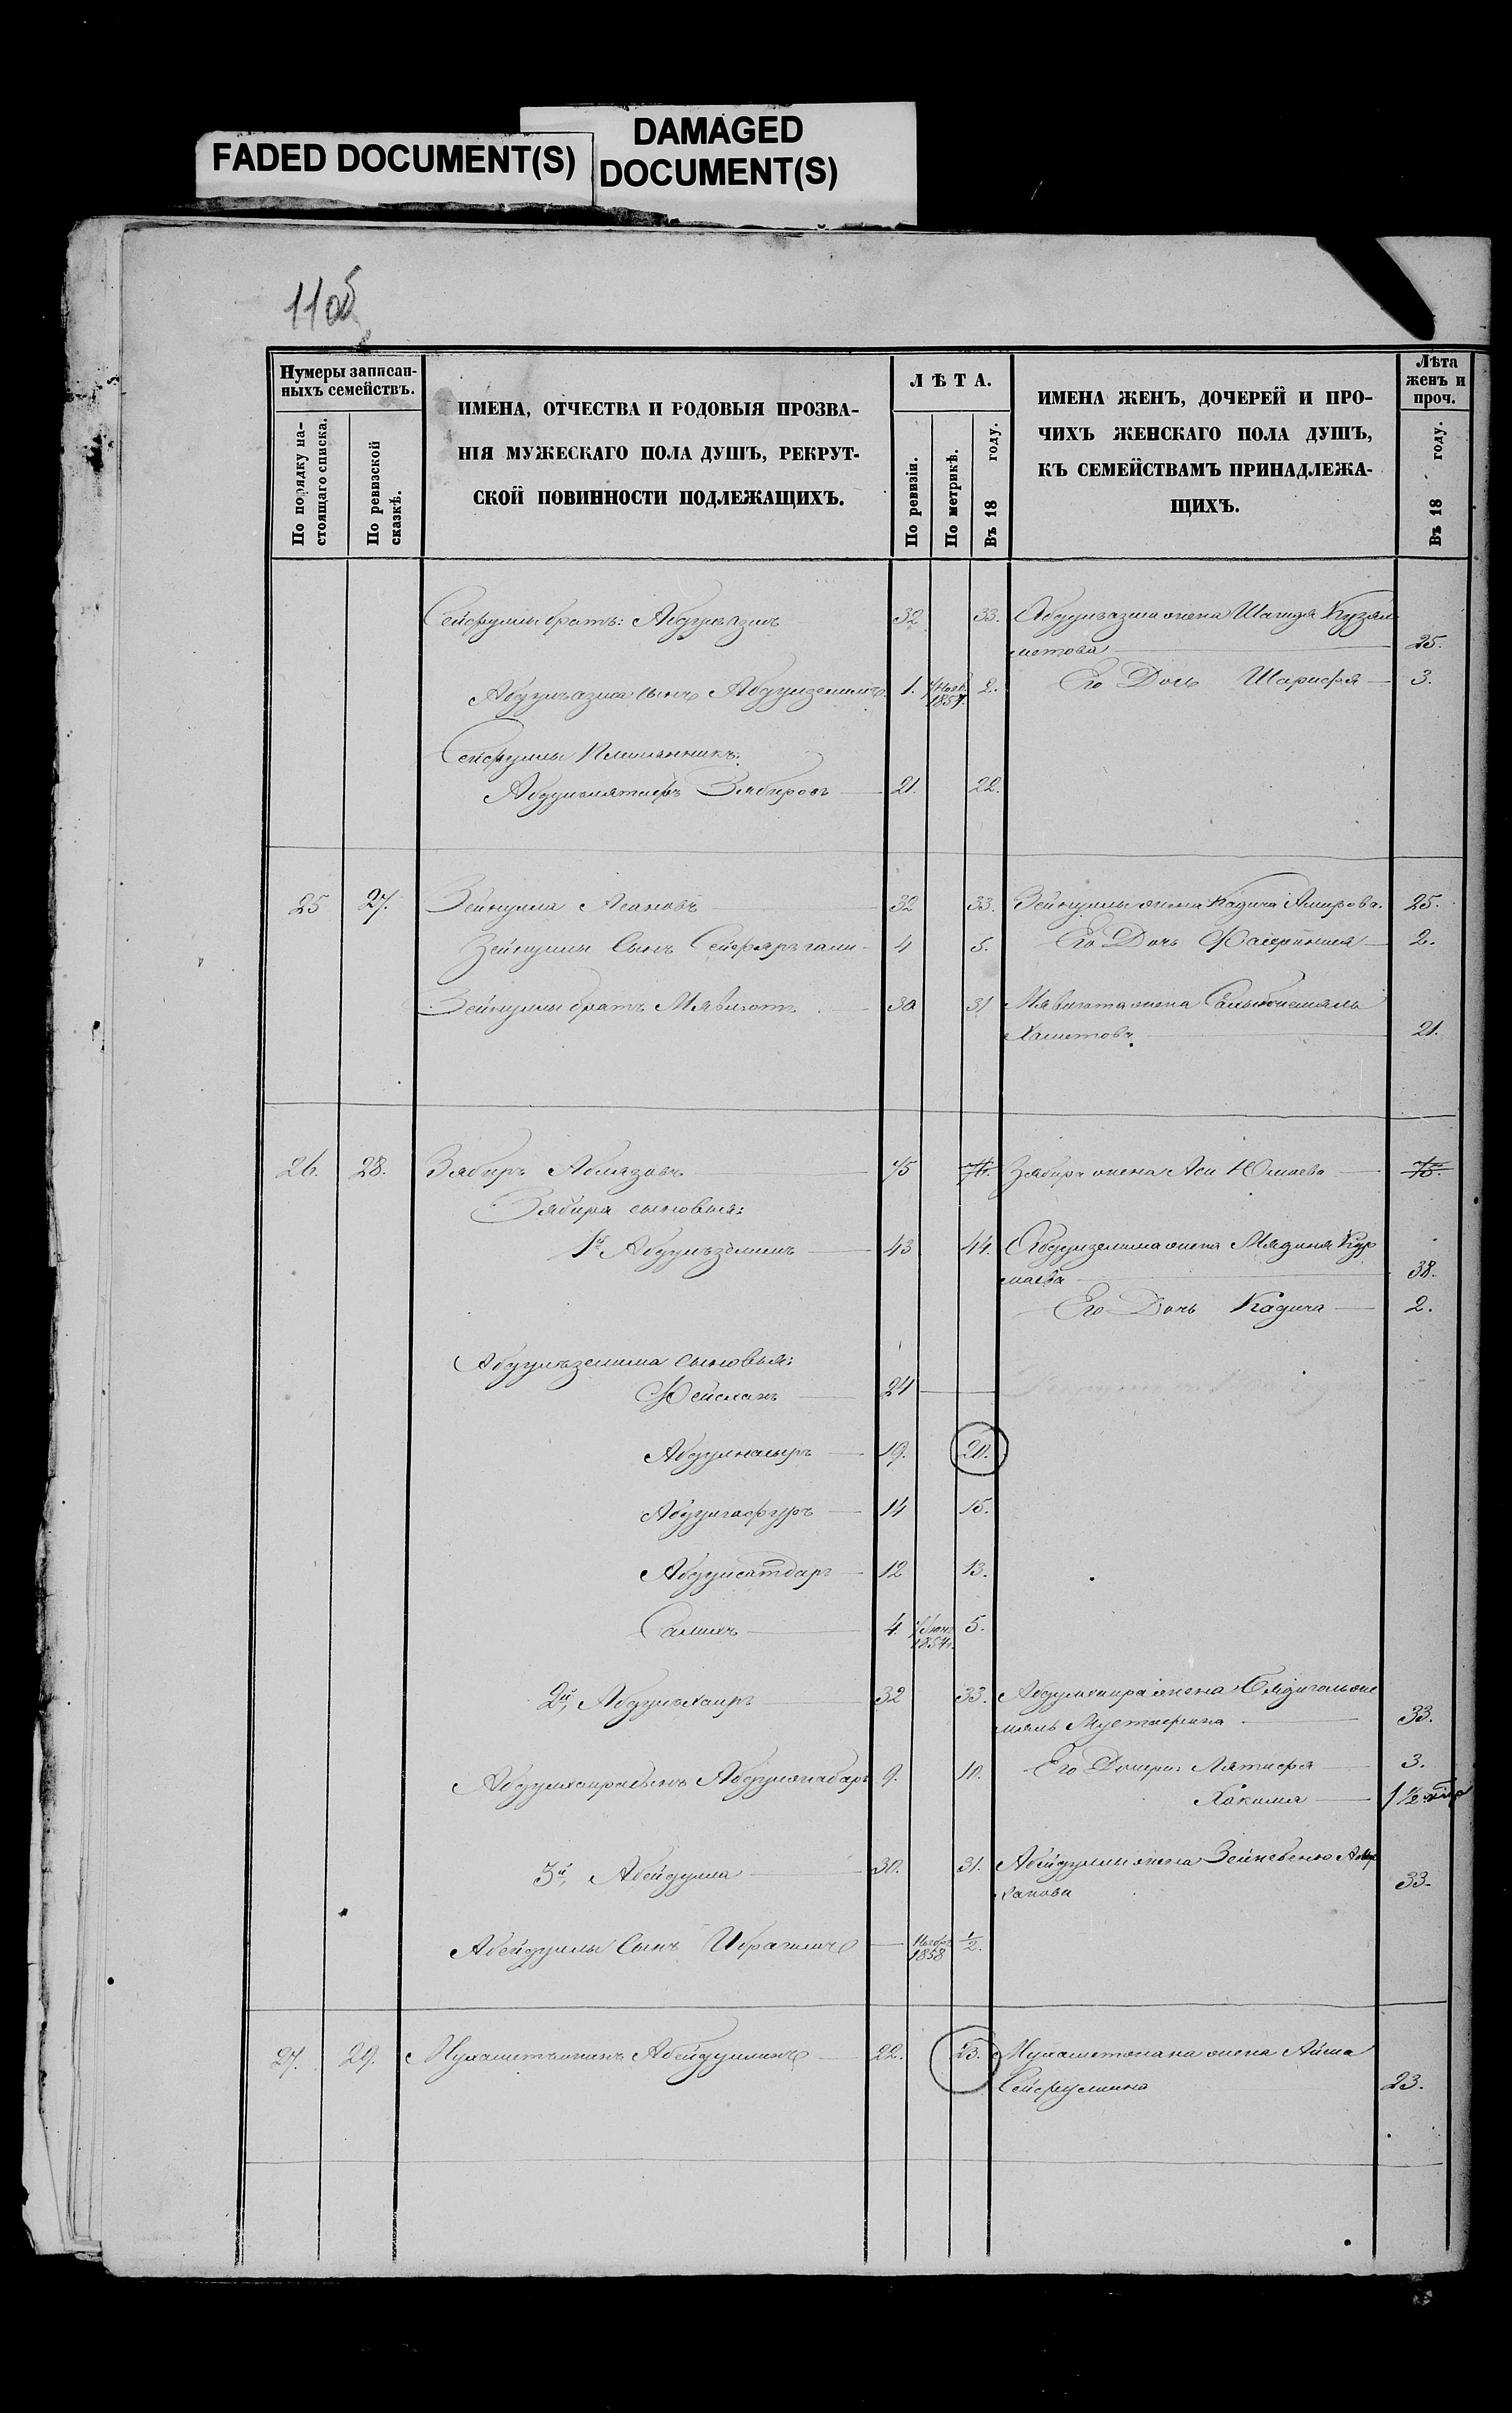 FADED DOCUMENT(S)
DAMAGED
DOCUMENT(S)
11об
Нумеры записан-
ныхъ семействъ.
По порядку на-
стоящаго списка.
По ревизской
сказкѣ.
ИМЕНА, ОТЧЕСТВА И РОДОВЫЯ ПРОЗВА-
НІЯ МУЖЕСКАГО ПОЛА ДУШЪ, РЕКРУТ-
СКОЙ ПОВИННОСТИ ПОДЛЕЖАЩИХЪ.
ЛѢТА.
По ревизіи.
По метрикѣ.
Въ 18 году.
ИМЕНА ЖЕНЪ, ДОЧЕРЕЙ И ПРО-
ЧИХЪ ЖЕНСКАГО ПОЛА ДУШЪ,
КЪ СЕМЕЙСТВАМЪ ПРИНАДЛЕЖА-
ЩИХЪ.
Лѣта
женъ и
проч.
Въ 18 году.
Сейфуллы братъ: Абдулъазисъ 32 33. Абдулъазиса жена
метова 25.
Абдулъазиса сынъ 1. 1857. 2. Его Дочь Шарифя 3.
Сейфуллы Племянникъ:
Абдуллятифъ Зябировъ 21. 22.
25 27. Зейнулла Асановъ 32 33. Зейнуллы жена Кадича Амирова. 25.
Зейнуллы Сынъ 4 5. Его Дочь 2.
Зейнуллы братъ 30 31 жена
Хаметова 21.
26. 28. Зябиръ Аблязовъ 75 76. Зябира жена 75.
Зябира сыновья:
1й Абдулъзелилъ 43 44. Абдулзелила жена Мядиня Кур
маева 38.
Его Дочь Кадича 2.
Абдулъзелила Сыновья:
Фейсханъ 24
Абдулнасыръ 19. 20.
Абдулгафуръ 14 15.
Абдулсатдаръ 12 13.
Салихъ 4. 1854. 5.
2й, Абдулхаиръ 32 33. Абдулхаира жена
Мустафина 33.
Абдулхаира сынъ Абдулжабаръ 9. 10. Его Дочери: Лятифя 3.
Хакимя 1 1/2
3й, Абейдулла 30. 31. Абейдуллы жена
ханова 33.
Абейдуллы Сынъ Ибрагимъ Ноябр 1858 1/2.
27. 29. Мухаметжанъ Абейдуллинъ 22. 23. Мухаметжана жена Айша
Сейфуллина 23.